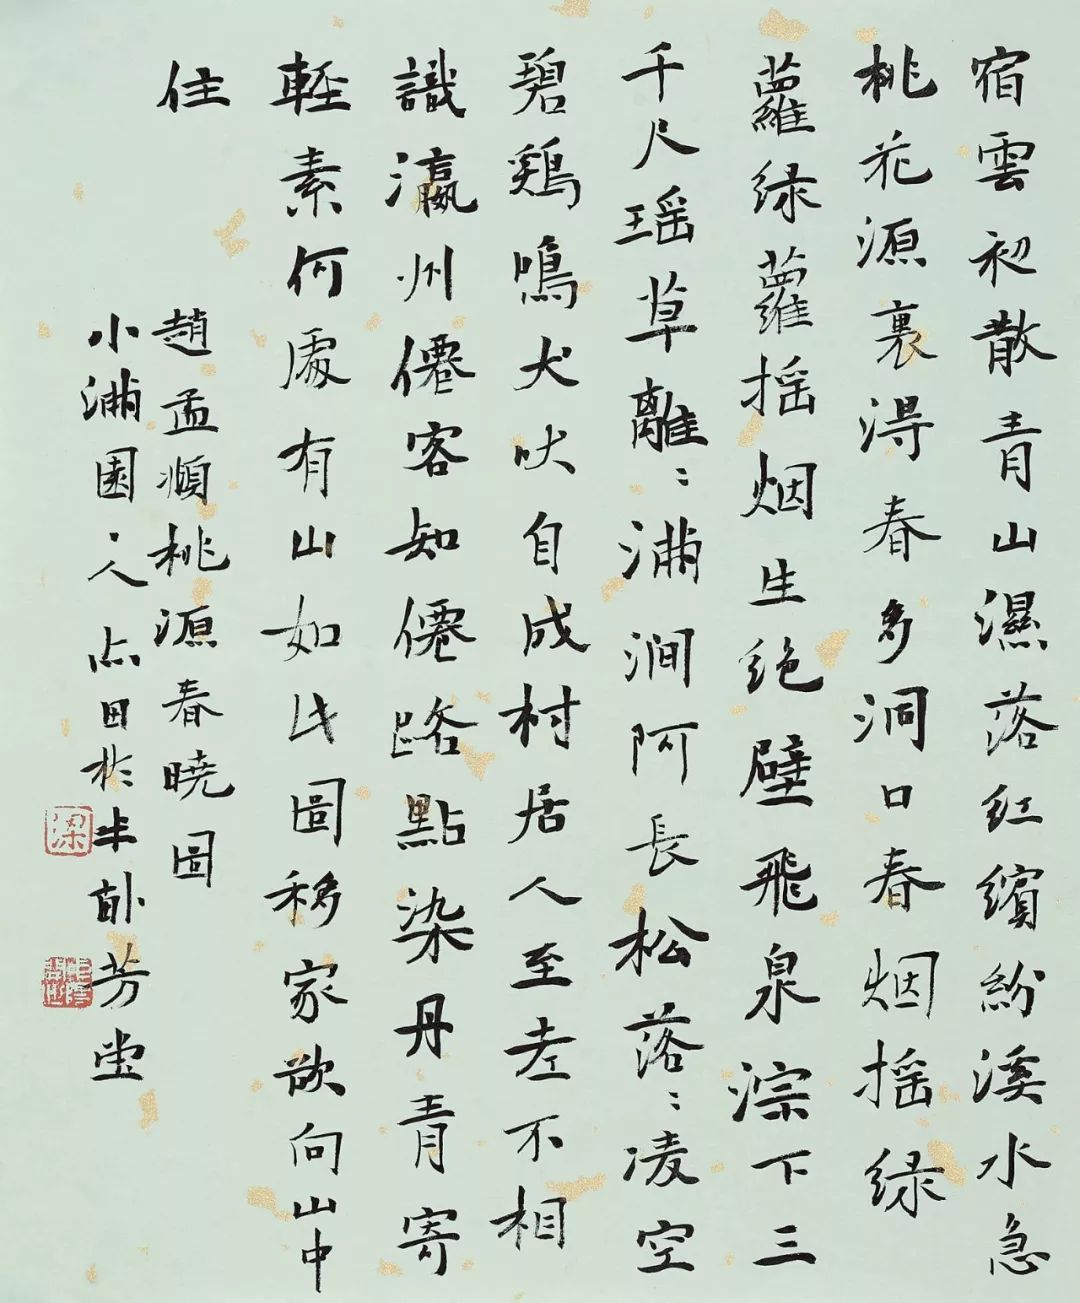 宿雲初散青山濕落红繽紛溪水急
桃花源裏淂春多洞口春烟摇绿
蘿绿蘿摇烟生绝壁飛泉淙下三
千尺瑶草離〻满涧阿長松落〻凌空
碧鷄鳴犬吠自成村居人至老不相
識瀛州僊客知僊路點染丹青寄
輕素何處有山如此圖移家欲向山中
住
趙孟頫桃源春曉圖
小滿園人占田於半畝芳堂
梁